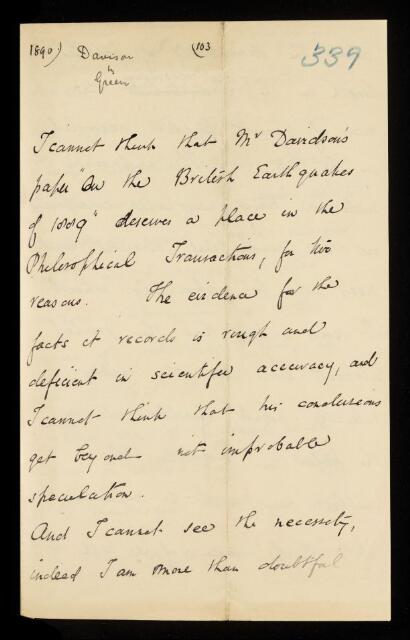 1890) Davison (103 339
by
Green
I cannot think that Mr Davidson's
paper "On the British Earthquakes
of 1889" deserves a place in the
Philosophical Transactions, for two
reasons. The evidence for the
facts it records is rough and
deficient in scientific accuracy, and
I cannot think that his conclusions
get beyond not improbable
speculation.
And I cannot see the necessity,
indeed I am more than doubtful